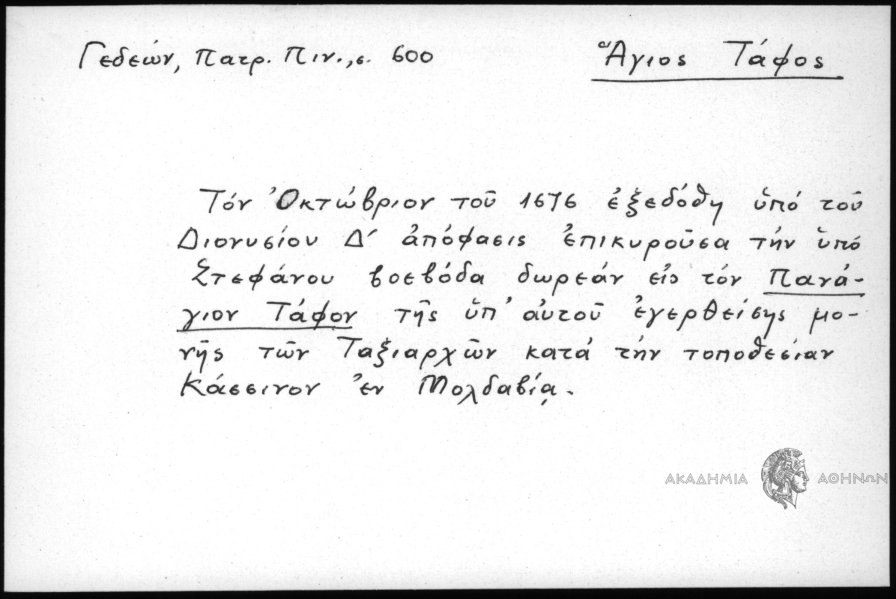 Γεδεών, Πατρ. Πιν., σ. 600
Ἅγιος Τάφος
Τόν Ὀκτώβριον τοῦ 1676 ἐξεδόθη ὑπό τοῦ
Διονυσίου Δ΄ ἀπόφασις ἐπικυροῦσα τήν ὑπό
Στεφάνου βοεβόδα δωρεάν εἰς τόν Πανά-
γιον Τάφον τῆς ὑπ' αὐτοῦ ἐγερθείσης μο-
νῆς τῶν Ταξιαρχῶν κατά τήν τοποθεσίαν
Κάσσινον ἐν Μολδαβίᾳ.
ΑΚΑΔΗΜΙΑ ΑΘΗΝΩΝ